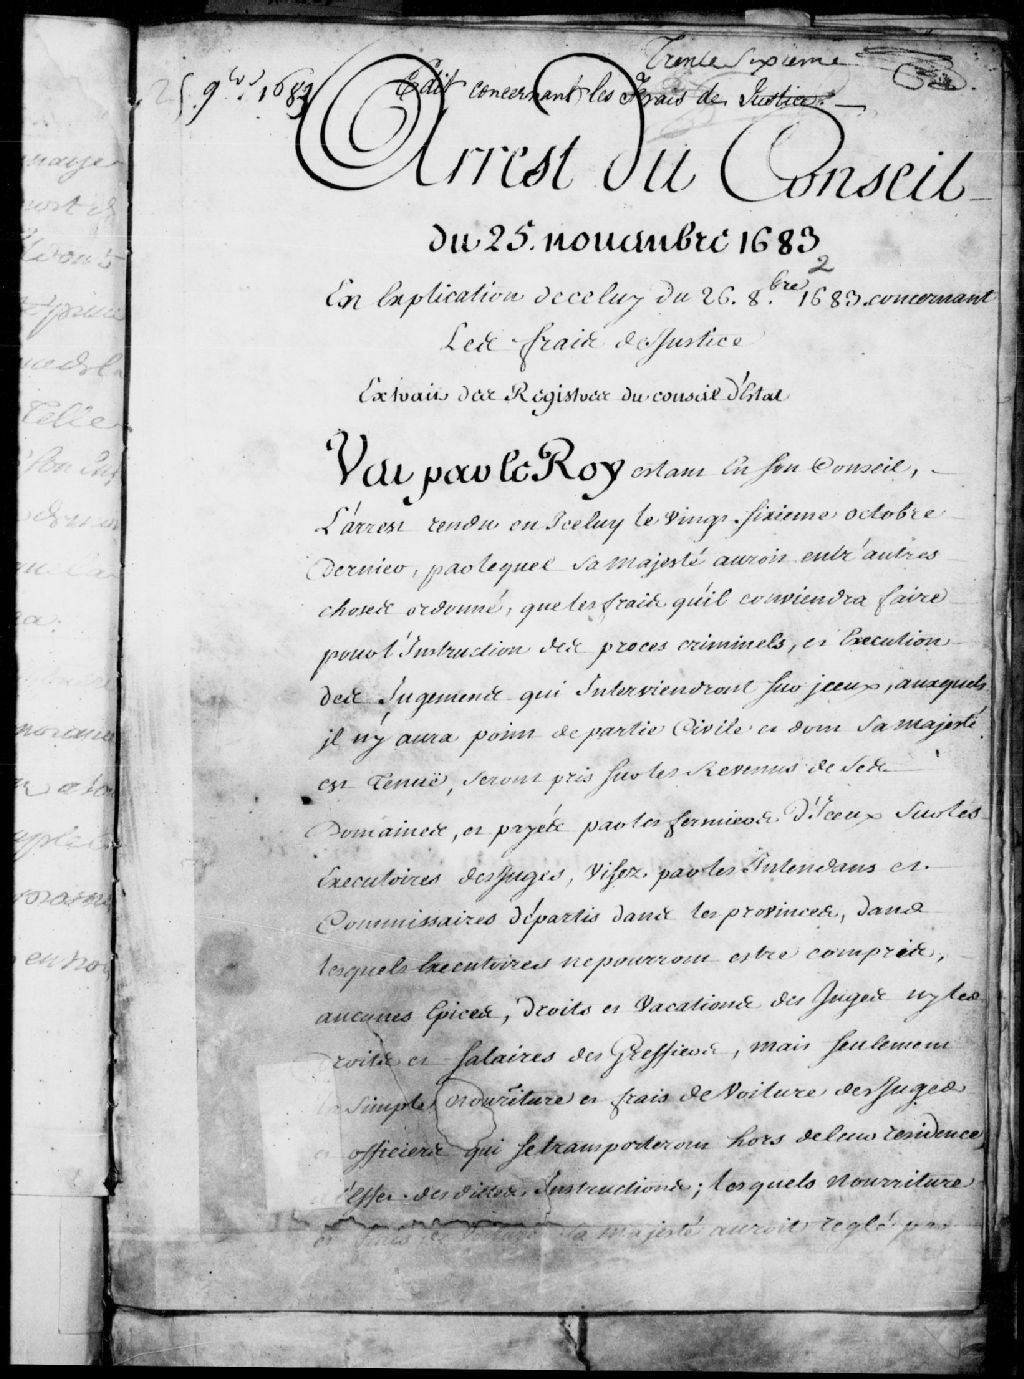 Trente Sixieme
25. 9bre. 1683 Edit concernant les Frais de Justice
Arrest du Conseil
du 25. nouembre 1683
2
En Explication de celuy du 26. 8.bre 1683. concernant
Les frais de Justice
Extrait des Registres du conseil d'Estat
Veu par le Roy estant En son Conseil,
L'arrest rendu en Iceluy le Vingt-sixieme octobre
Dernier, par lequel sa Majesté auroit entr'autres
choses ordonné, que les frais qu'il conviendra faire
pour l'Instruction des proces criminels, et Execution
des Jugements qui Interviendront sur jceux, auxquels
jl n'y aura point de partie Civile et dont sa Majesté
est Tenuë, seront pris sur les Revenus de Ses
Domaines, et payés par les fermiers D'Iceux sur les
Executoires des Juges, Visez par les Intendans et
Commissaires départis dans les provinces, dans
lesquels Executoires ne pourront estre compris,
aucunes Epices, Droits et Vacations des Juges ny les
Droits et salaires des Greffiers, mais seulement
la Simple nourriture et frais de Voiture des Juges
et officiers qui se transporteront hors de leur residence
à l'effet desdittes Instructions; lesquels nourriture
et frais de Voiture sa Majesté auroit reglé par